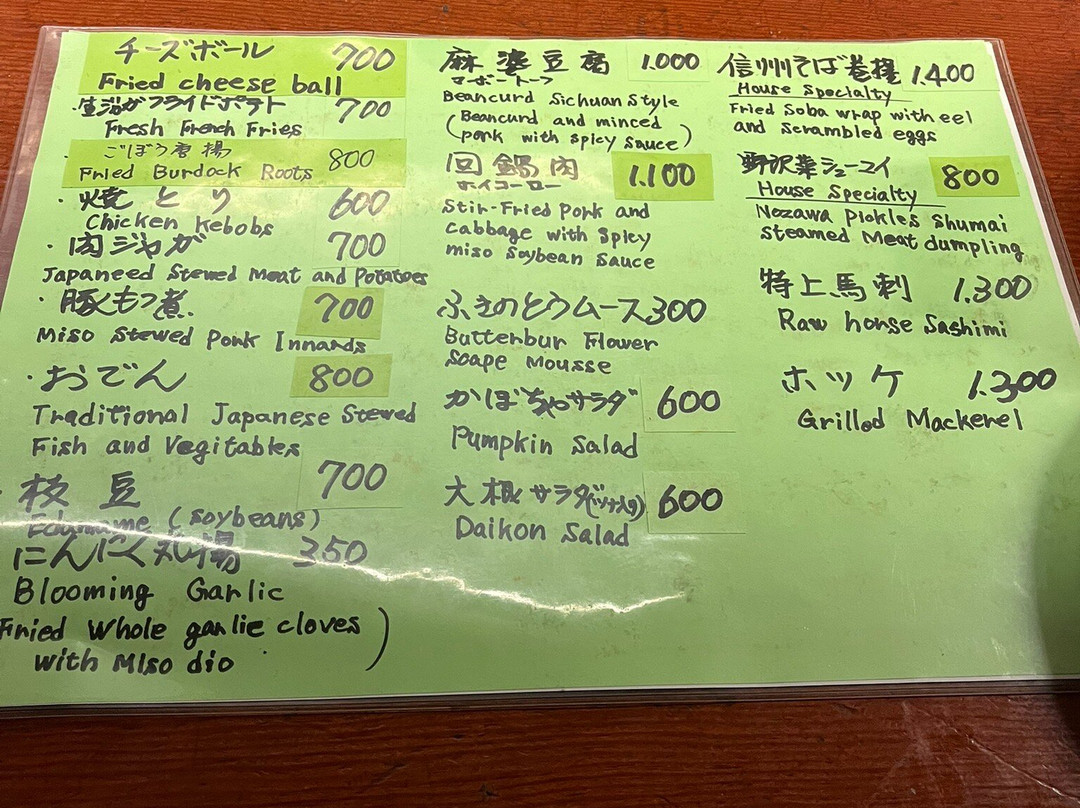 チーズボール 700
Fried cheese ball
生じゃがフライドポテト 700
Fresh French Fries
ごぼう唐揚 800
Fried Burdock Roots
焼とり 600
Chicken Kebobs
肉ジャガ 700
Japaneed Stewed Meat and Potatoes
豚もつ煮 700
Miso Stewed Pork Innards
おでん 800
Traditional Japanese Stewed
Fish and Vegitables
枝豆 700
Edamame (soybeans)
にんにく丸揚 350
Blooming Garlic
Fried Whole garlic cloves)
with Miso dip
麻婆豆腐 1.000
マーボートーフ
Beancurd Sichuan Style
(Beancurd and minced
pork with spicy sauce)
回鍋肉 1.100
ホイコーロー
Stir-Fried Pork and
Cabbage with Spicy
miso Soybean Sauce
ふきのとうムース 300
Butterbur Flower
Scape Mousse
かぼちゃサラダ 600
Pumpkin Salad
大根サラダ(ツナ入り) 600
Daikon Salad
信州そば巻揚 1.400
House Specialty
Fried Soba wrap with eel
and scrambled eggs
野沢菜シューマイ 800
House Specialty
Nozawa Pickles Shumai
Steamed Meat dumpling
特上馬刺 1.300
Raw horse Sashimi
ホッケ 1.300
Grilled Mackerel